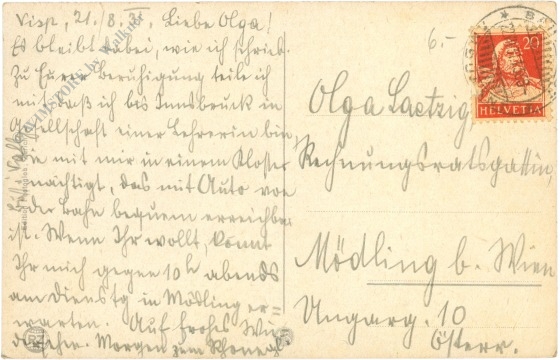 Visp, 21./8. 31. Liebe Olga!
Es bleibt dabei, wie ich schrieb.
Zu Eurer Beruhigung teile ich
mit, daß ich bis Innsbruck in
Gesellschaft einer Lehrerin bin,
die mit mir in einem Kloster
nächtigt, das mit Auto von
der Bahn bequem erreichbar
ist. Wenn Ihr wollt, könnt
Ihr mich gegen 10h abends
am Dienstg in Mödling er-
warten. Auf frohes Wie
dersehen. Morgen zum
6.-
Olga Laetzig,
Rechnungsratsgattin,
Mödling b. Wien
Ungarg. 10
Österr.
20
HELVETIA